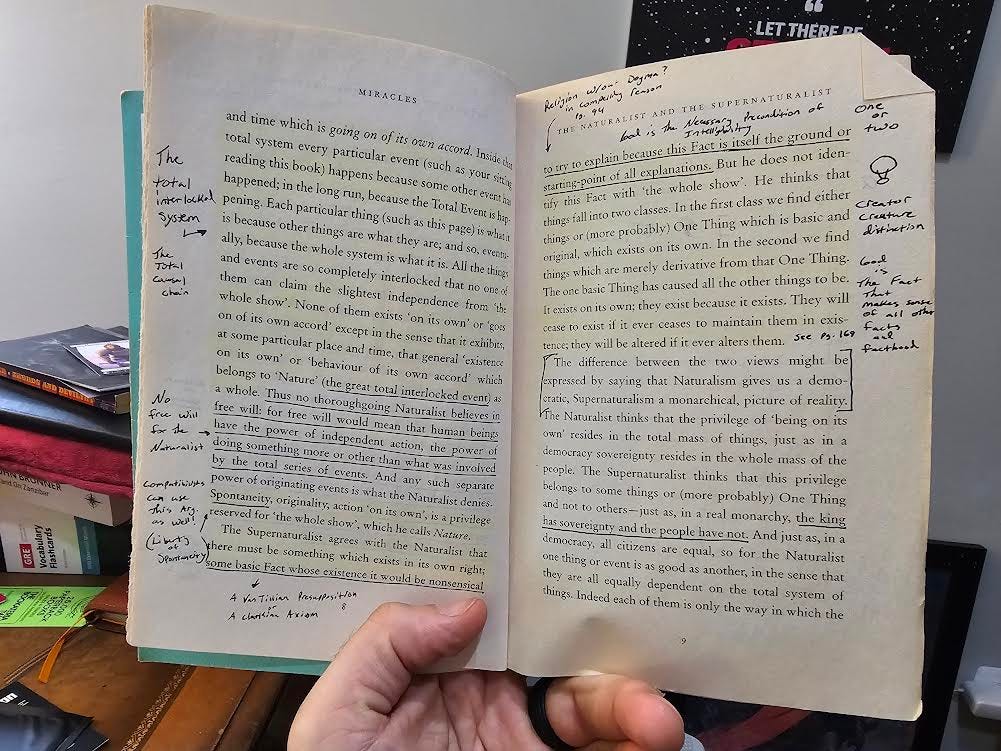 MIRACLES
and time which is going on of its own accord. Inside that
total system every particular event (such as your sitting
reading this book) happens because some other event has
happened; in the long run, because the Total Event is hap-
pening. Each particular thing (such as this page) is what it
is because other things are what they are; and so, eventu-
ally, because the whole system is what it is. All the things
and events are so completely interlocked that no one of
them can claim the slightest independence from 'the
whole show'. None of them exists 'on its own' or 'goes
on of its own accord' except in the sense that it exhibits,
at some particular place and time, that general 'existence
on its own' or 'behaviour of its own accord' which
belongs to 'Nature' (the great total interlocked event) as
a whole. Thus no thoroughgoing Naturalist believes in
free will: for free will would mean that human beings
have the power of independent action, the power of
doing something more or other than what was involved
by the total series of events. And any such separate
power of originating events is what the Naturalist denies.
Spontaneity, originality, action 'on its own', is a privilege
reserved for 'the whole show', which he calls Nature.
The Supernaturalist agrees with the Naturalist that
there must be something which exists in its own right;
some basic Fact whose existence it would be nonsensical
8
The
total
interlocked
system
The
Total
causal
chain
No
free will
for the
Naturalist
Compatibilists
can use
this Arg.
as well!
(Liberty
of
Spontaneity)
A Van Tillian Presupposition
or
A Clarkian Axiom
Religion w/out Dogma?
in compelling reason
pg. 94
THE NATURALIST AND THE SUPERNATURALIST
God is the Necessary Precondition of
Intelligibility
to try to explain because this Fact is itself the ground or
starting-point of all explanations. But he does not iden-
tify this Fact with 'the whole show'. He thinks that
things fall into two classes. In the first class we find either
things or (more probably) One Thing which is basic and
original, which exists on its own. In the second we find
things which are merely derivative from that One Thing.
The one basic Thing has caused all the other things to be.
It exists on its own; they exist because it exists. They will
cease to exist if it ever ceases to maintain them in exis-
tence; they will be altered if it ever alters them. See pg. 169
The difference between the two views might be
expressed by saying that Naturalism gives us a demo-
cratic, Supernaturalism a monarchical, picture of reality.
The Naturalist thinks that the privilege of 'being on its
own' resides in the total mass of things, just as in a
democracy sovereignty resides in the whole mass of the
people. The Supernaturalist thinks that this privilege
belongs to some things or (more probably) One Thing
and not to others—just as, in a real monarchy, the king
has sovereignty and the people have not. And just as, in a
democracy, all citizens are equal, so for the Naturalist
one thing or event is as good as another, in the sense that
they are all equally dependent on the total system of
things. Indeed each of them is only the way in which the
9
One
or
two
Creator
creature
distinction
God
is
The Fact
That
makes sense
of all other
facts
and
facthood
LET THERE BE
BRUNNER
Zanzibar
GRE
Vocabulary
Flashcards